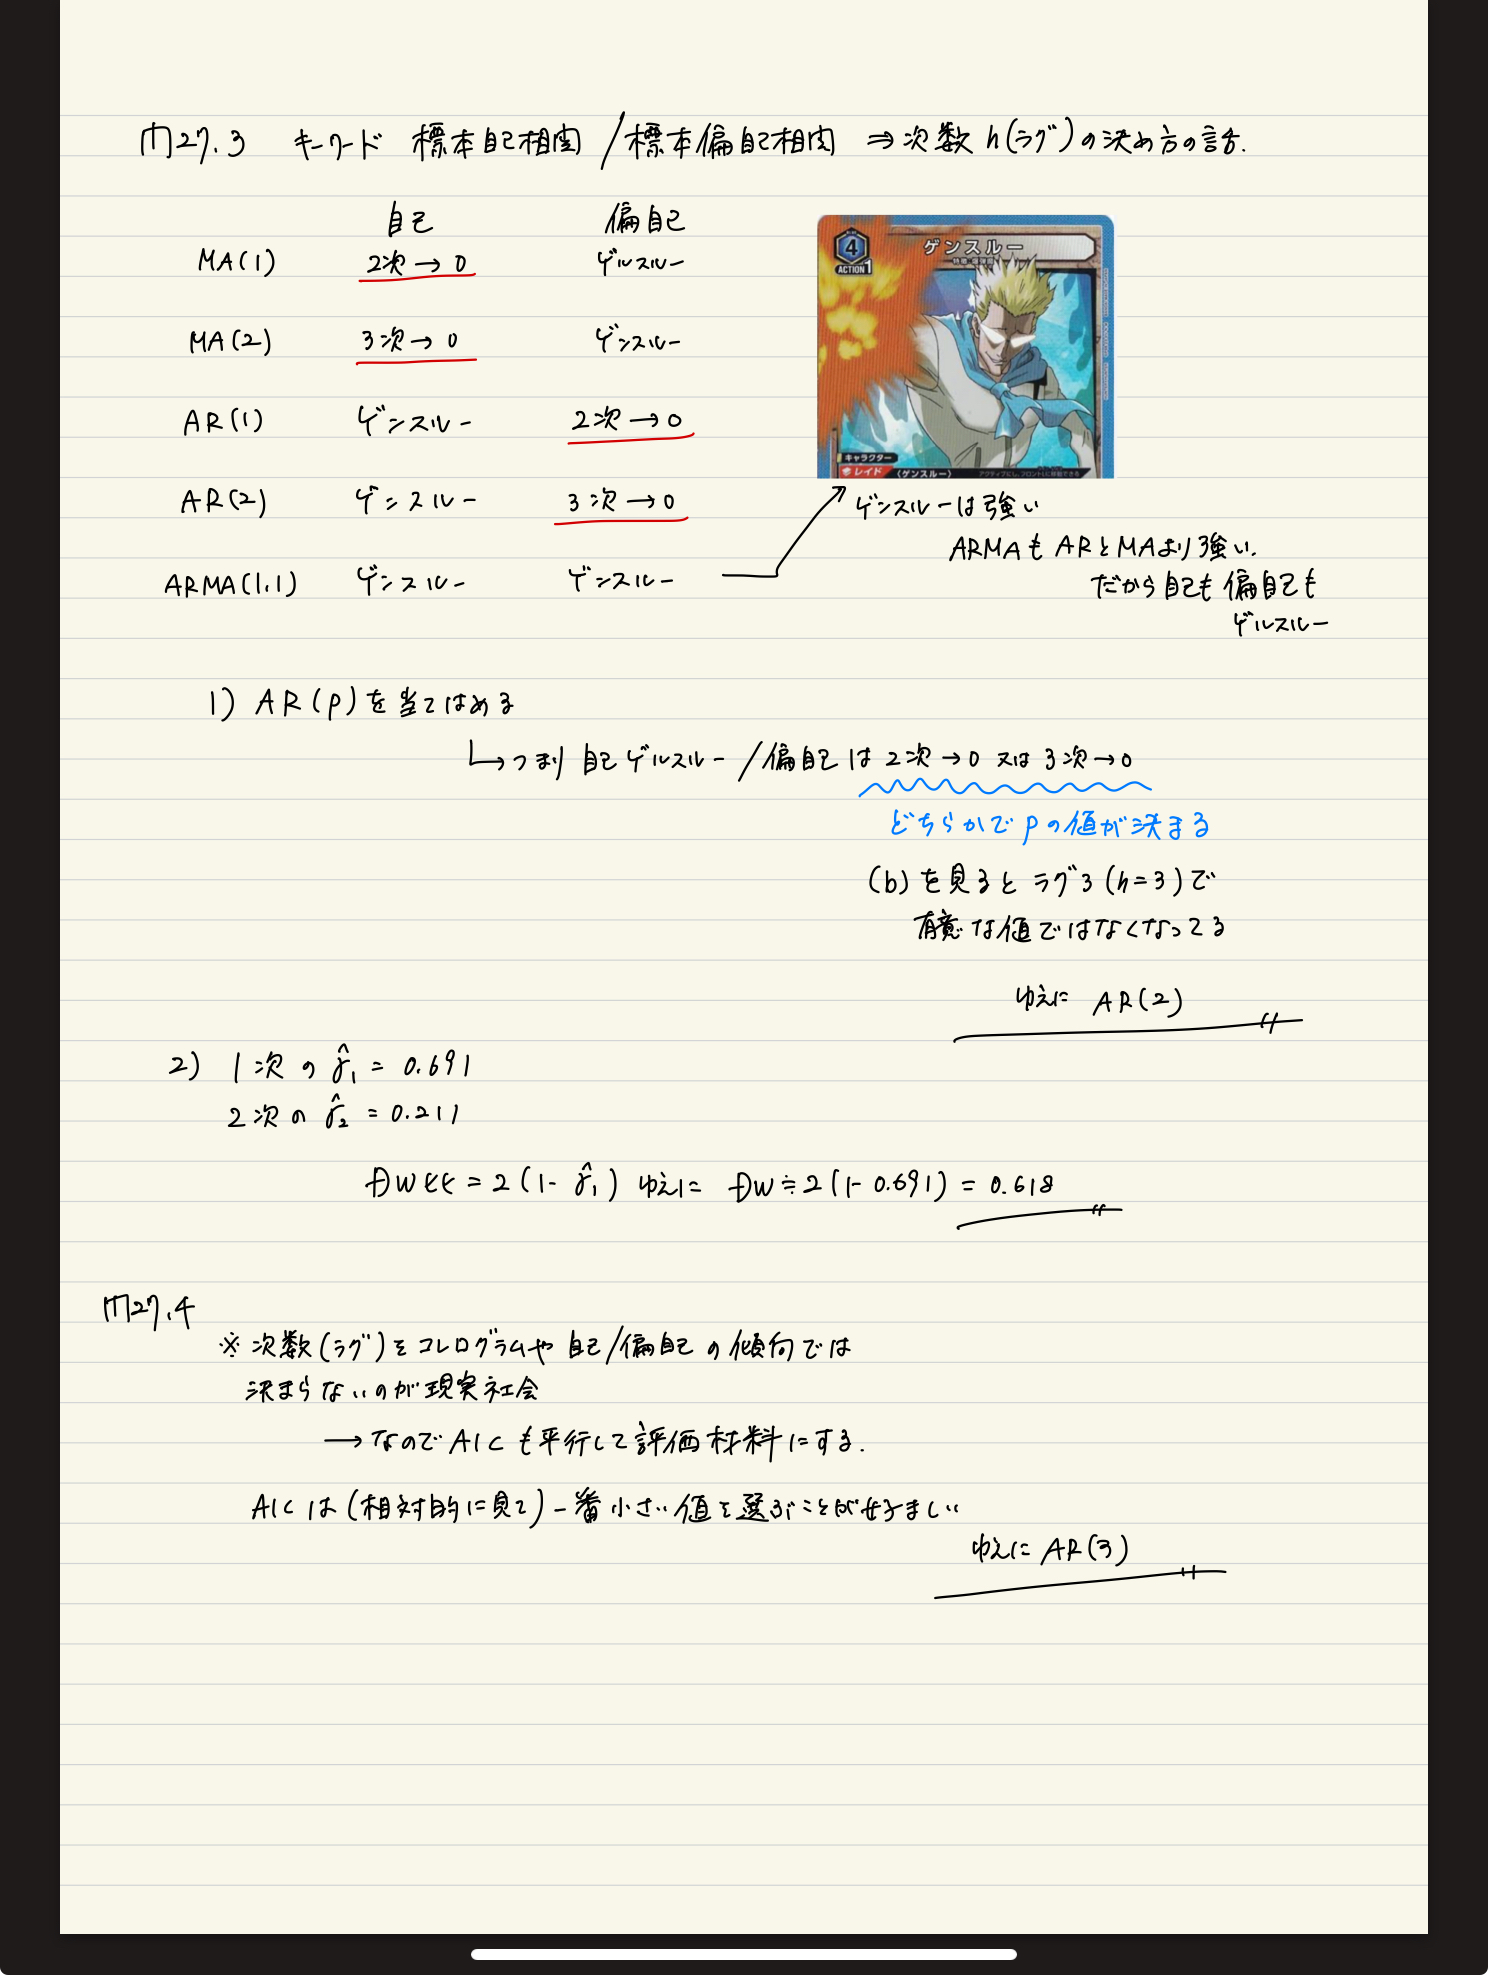 問27.3 キーワード 標本自己相関/標本偏自己相関 ⇒次数h(ラグ)の決め方の話.
自己 偏自己
MA(1) 2次→0 ゲルスルー
MA(2) 3次→0 ゲンスルー
AR(1) ゲンスルー 2次→0
AR(2) ゲンスルー 3次→0
ARMA(1.1) ゲンスルー ゲンスルー
4
ACTION1
ゲンスルー
キャラクター
レイド 〈ゲンスルー〉
ゲンスルーは強い
ARMAもARとMAより強い.
だから自己も偏自己も
ゲルスルー
1) AR(p)を当てはめる
つまり 自己ゲルスルー/偏自己は2次→0 又は3次→0
どちらかでpの値が決まる
(b)を見るとラグ3(h=3)で
有意な値ではなくなってる
ゆえに AR(2)
2) 1次の γ̂₁ = 0.691
2次の γ̂₂ = 0.211
DW比 = 2(1-γ̂₁) ゆえに DW≒2(1-0.691) = 0.618
問27.4
※次数(ラグ)をコレログラムや自己/偏自己の傾向では
決まらないのが現実社会
→なのでAICも平行して評価材料にする.
AICは(相対的に見て)一番小さい値を選ぶことが好ましい
ゆえにAR(3)